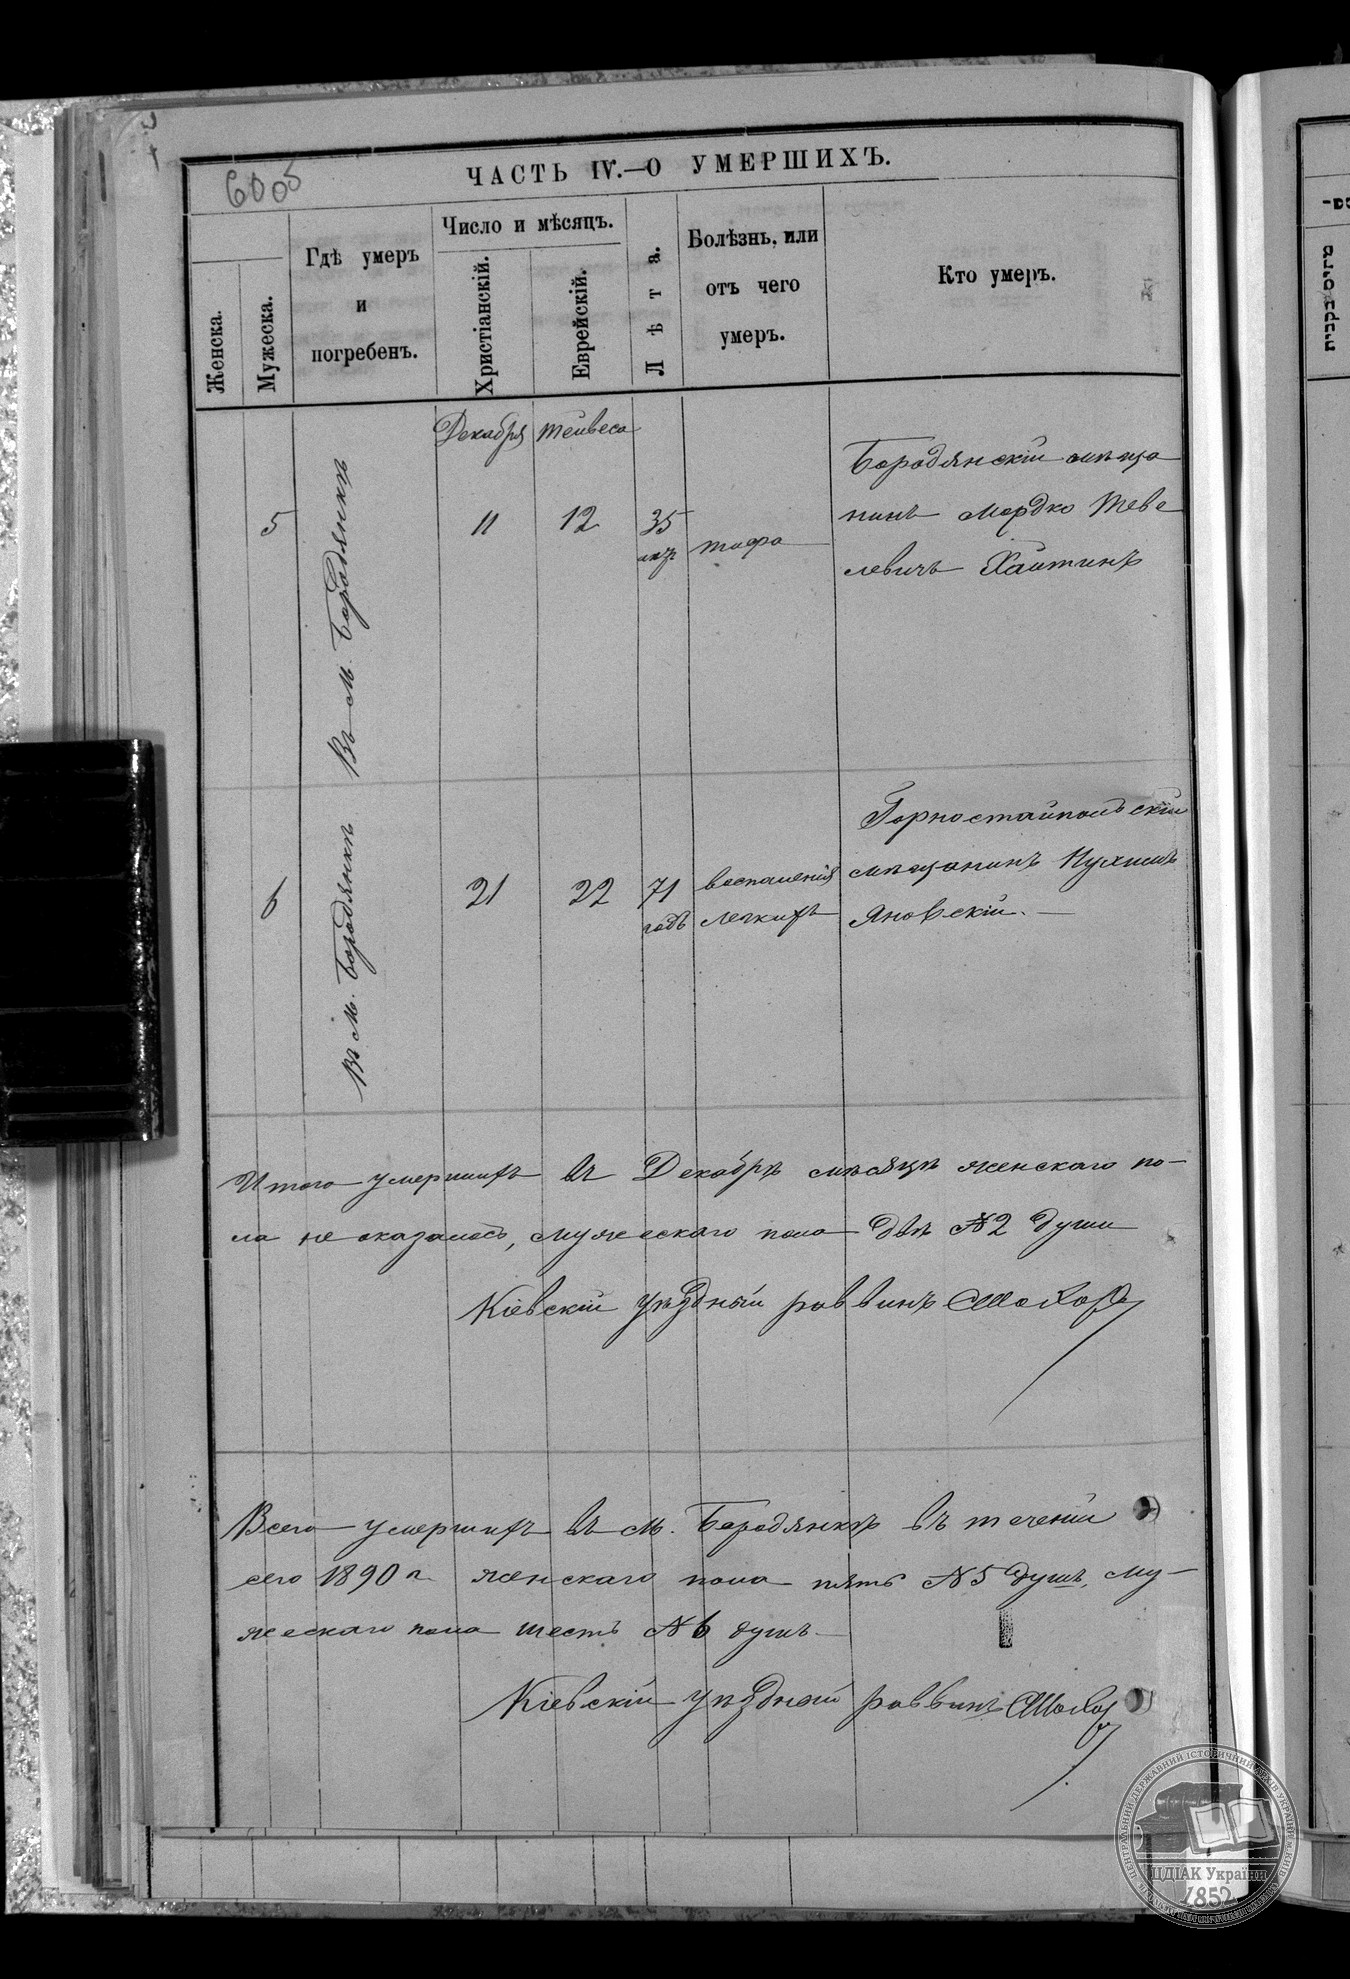 6005
ЧАСТЬ IV.—О УМЕРШИХЪ.
Женска.
Мужеска.
Гдѣ умеръ
и
погребенъ.
Число и мѣсяцъ.
Христіанскій.
Еврейскій.
Лѣта.
Болѣзнь, или
отъ чего
умеръ.
Кто умеръ.
Декабря
Тейвеса
5
Въ М. Бородянкѣ
11
12
35
лѣтъ
тифа
Бородянскій мѣща
нинъ Мордко Теве
левичъ Хаитинъ
6
Въ М. Бородянкѣ
21
22
71
годъ
воспаленія
легкихъ
Горностайпольскій
мѣщанинъ Нухимъ
Яновскій.
Итого умершихъ въ Декабрѣ мѣсяцѣ женскаго по-
ла не оказалось, мужескаго пола двѣ №2 души
Кіевскій уѣздный раввинъ
Всего умершихъ въ М. Бородянкѣ въ теченіи
сего 1890 г. женскаго пола пять №5 душъ, му-
жескаго пола шесть №6 душъ
Кіевскій уѣздный раввинъ
ЦЕНТРАЛЬНИЙ ДЕРЖАВНИЙ ІСТОРИЧНИЙ АРХІВ УКРАЇНИ М.КИЇВ
ЦДІАК України
1852